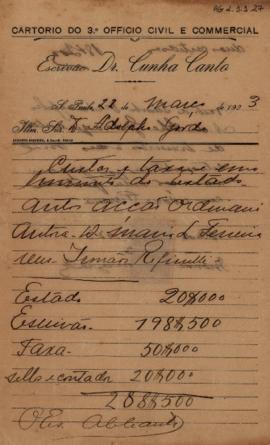 AG 2.3.3.27
CARTORIO DO 3.º OFFICIO CIVIL E COMMERCIAL
Escrivão Dr. Cunha Canto
S. Paulo, 22 de Março de 1923
Illmo. Snr. Dr. Adolpho Gordo
Custas e taxa e emo
do Estado
autos acção Ordinari
Autora D. Maria Ferreira
reus Irmãos Refinetti
Estado 20$000
Escrivão 198$500
Taxa 50$000
sello e contador 20$000
288$500
O Esc.